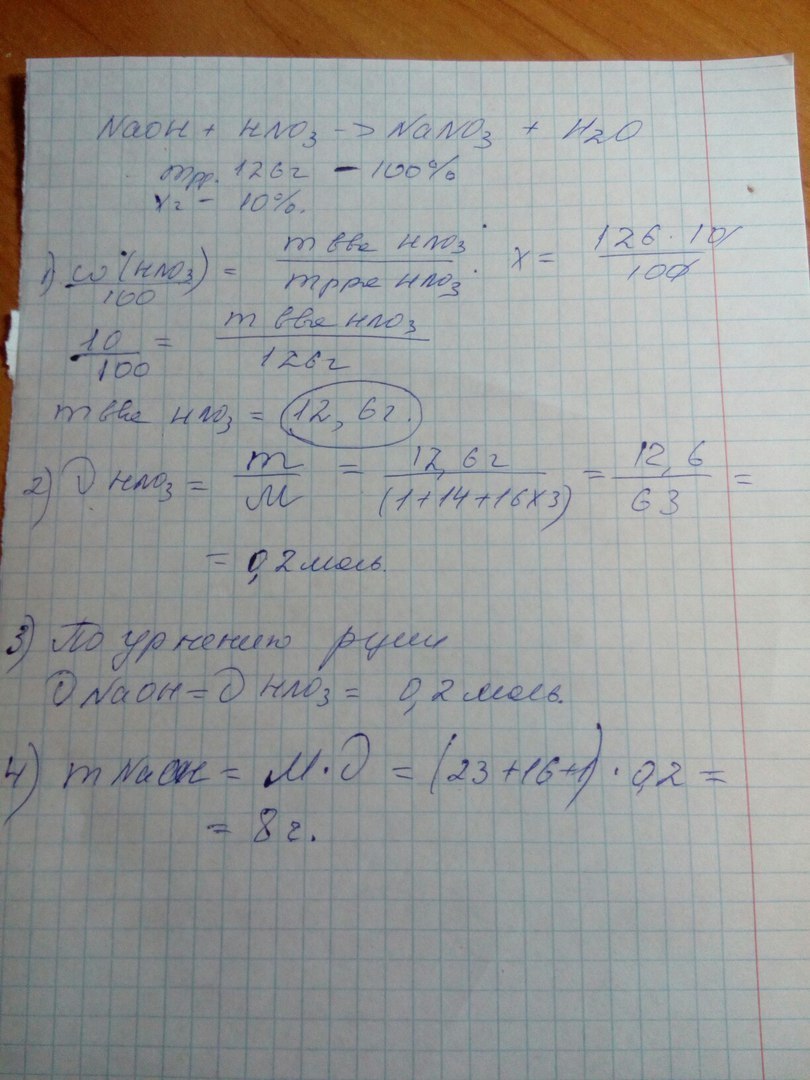 NaOH + HNO3 -> NaNO3 + H2O
mрр. 126г - 100%
xг - 10%.
1) ω(HNO3)/100 = m вва HNO3/m рра HNO3 x = 126·10/100
10/100 = m вва HNO3/126г
m вва HNO3 = 12,6г.
2) ∂ HNO3 = m/M = 12,6г/(1+14+16×3) = 12,6/63 =
= 0,2 моль.
3) По урнению рции
∂ NaOH = ∂ HNO3 = 0,2 моль.
4) m NaOH = M·∂ = (23+16+1)·0,2 =
= 8г.